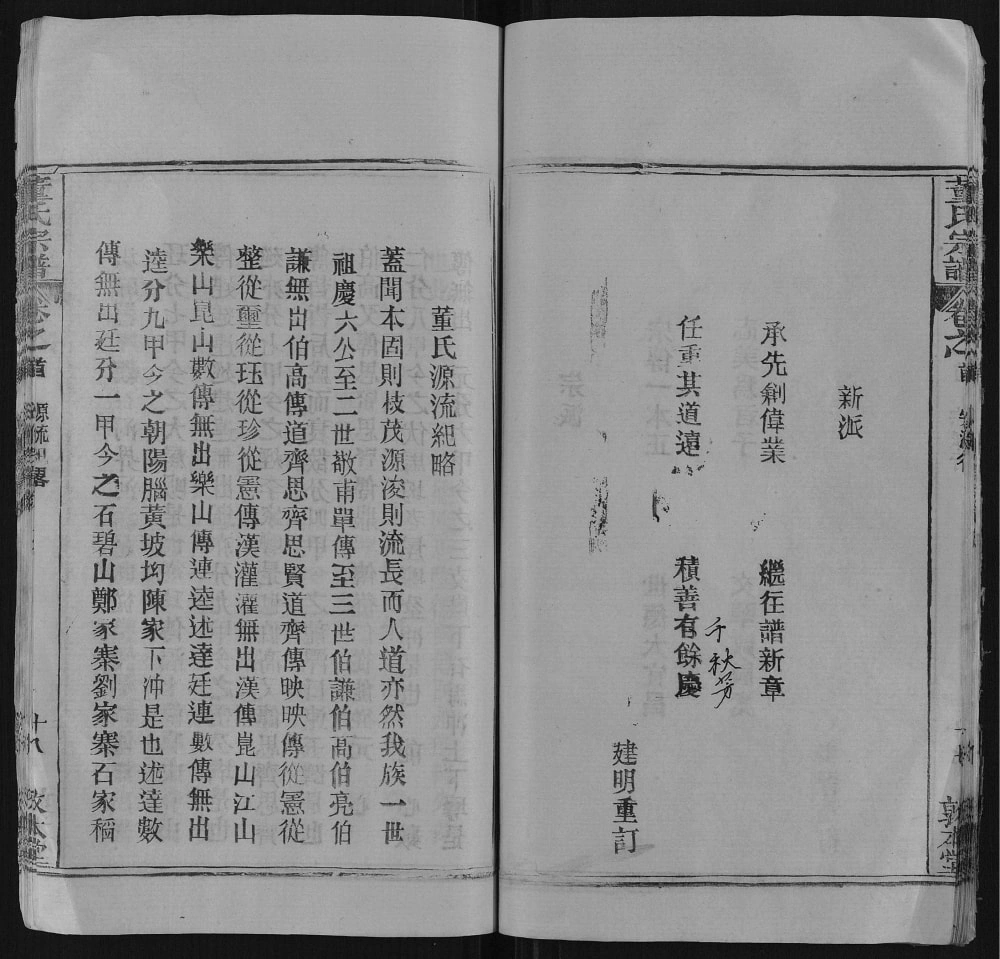 董氏宗譜
卷之首
敦本堂
新派
承先創偉業 繼往譜新章
任重其道遠 積善有餘慶
千秋芳
建明重訂
董氏源流紀略
蓋聞本固則枝茂源浚則流長而人道亦然我族一世
祖慶六公至二世敬甫單傳至三世伯謙伯高伯亮伯
謙無出伯高傳道齊思齊思賢道齊傳映映傳從憲從
整從璽從珏從珍從憲傳漢灌灌無出漢傳崑山江山
樂山崑山數傳無出樂山傳連逵述達廷連數傳無出
逵分九甲今之朝陽腦黃坡坳陳家下冲是也述達數
傳無出廷分一甲今之石碧山鄭家寨劉家寨石家稻
董氏宗譜
卷之首
源流紀畧
十八
敦本堂